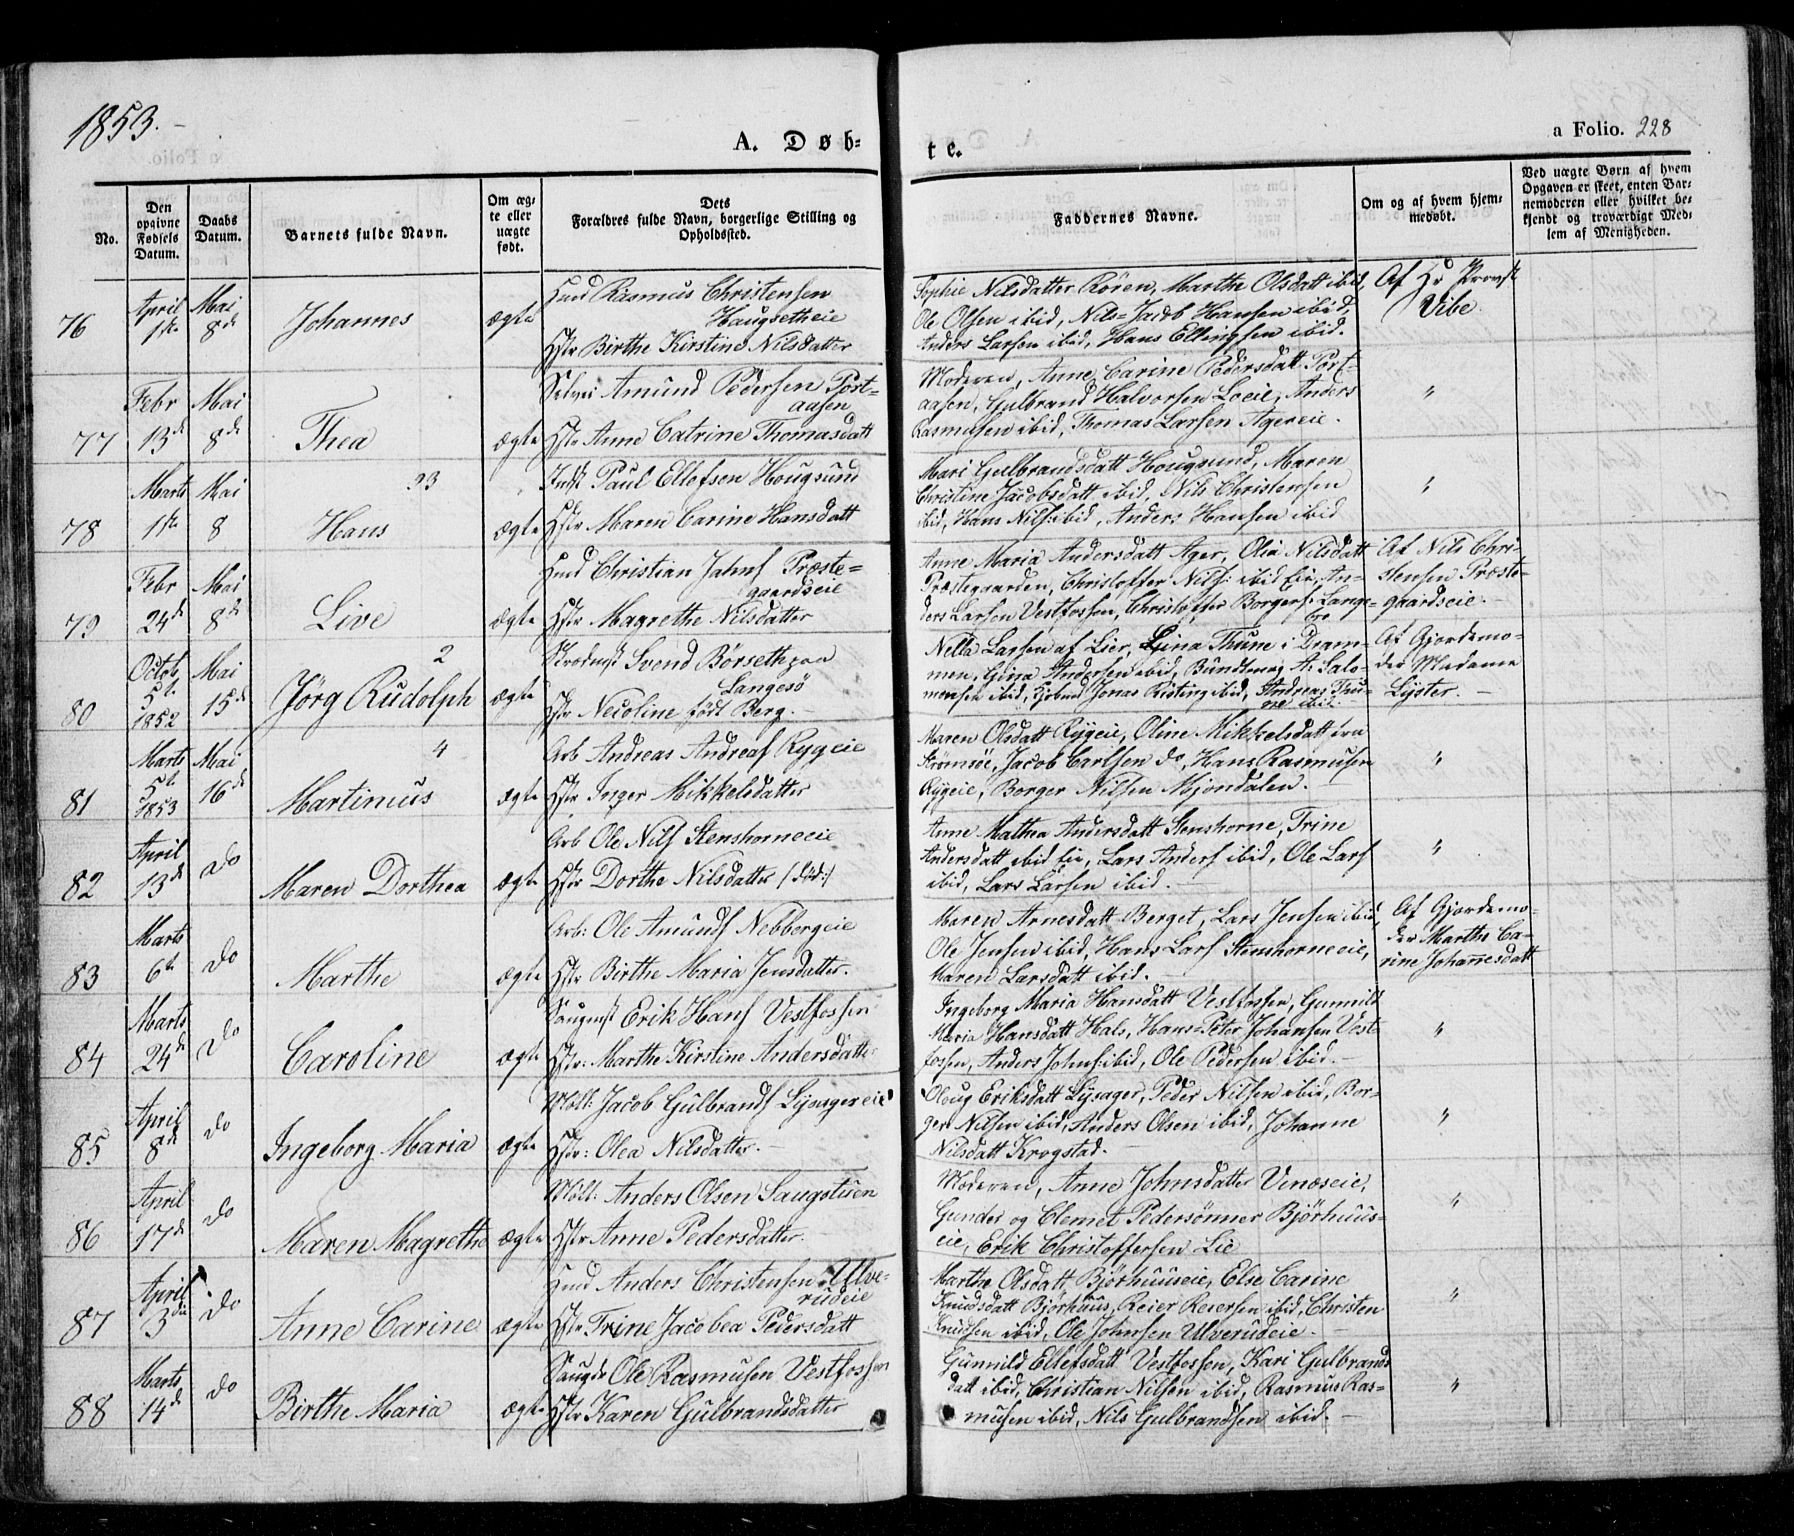 1853.
A. Døb-
te.
a Folio. 228
No.
Den opgivne Fødsels Datum.
Daabs Datum.
Barnets fulde Navn.
Om ægte eller uægte født.
Dets Forældres fulde Navn, borgerlige Stilling og Opholdssted.
Faddernes Navne.
Om og af hvem hjemmedøbt.
Ved uægte Børn af hvem Opgaven er skeet, enten Barnemoderen eller hvilket bekjendt og troværdigt Medlem af Menigheden.
76 April 1ste Mai 8de Johannes ægte
Huusmd Rasmus Christensen
Haugsetheie
Hstr Birthe Kirstine Nilsdatter
Sophie Nilsdatter Rören, Marthe Olsdatt ibid,
Ole Olsen ibid, Nils-Jacob Hansen ibid,
Anders Larsen ibid, Hans Ellingsen ibid.
Af Hr Provst
Vibe.
77 Febr 13de Mai 8de Thea ægte
Selvei Amund Pedersen Port-
aasen
Hstr Anne Catrine Thomasdatt
Moderen, Anne Carine Pedersdatt Port-
aasen, Gulbrand Halvorsen Loeie, Anders
Rasmusen ibid, Thomas Larsen Agereie.
"
78 Marts 1ste Mai 8 Hans 33 ægte
Indst Paul Ellefsen Hougsund
Hstr Maren Carine Hansdatt
Mari Gulbrandsdatt Hougsund, Maren
Christine Jacobsdatt ibid, Nils Christensen
ibid, Hans Nilss: ibid, Anders Hansen ibid
"
79 Febr 24de Mai 8de Live ægte
Huusmd Christian Jahns Præste-
gaardseie
Hstr Magrethe Nilsdatter
Anne Maria Andersdatt Ager, Olia Nilsdatt
Præstegaarden, Christoffer Nilss: ibid Eie, An-
ders Larsen Vestfossen, Christoffer Borgers: Lange-
bro
Af Nils Chri-
stensen Præste-
gaardseie.
80 Octob 5t 1852 Mai 15de Jörg Rudolph 2 ægte
Svend Börseth paa
Langesö
Hstr Nicoline födt Berg.
Nella Larsen af Lier, Lina Thune i Dram-
men, Gina Andersen ibid, A. Salo-
monsen ibid, Jonas Risting ibid, Andreas Thu-
ne ibid.
Af Gjordemo-
der Madame
Lyster.
81 Marts 5t 1853 Mai 16de Martinus 4 ægte
Arb Andreas Andreas Rygeie
Hstr Inger Mikkelsdatter
Maren Olsdatt Rygeie, Oline Mikkelsdatt fra
Strömsöe, Jacob Carlsen do, Hans Rasmusen
Rygeie, Borger Nilsen Mjöndalen.
"
82 April 13de Do Maren Dorthea ægte
Arb Ole Nils Stenshorneeie
Hstr Dorthe Nilsdatter /:död:/
Anne Mathea Andersdatt Stenshorne, Trine
Andersdatt ibid Eie, Lars Anders ibid, Ole Lars
ibid, Lars Larsen ibid.
"
83 Marts 6te Do Marthe ægte
Arb: Ole Amunds Nebbergeie
Hstr Birthe Maria Jensdatter.
Maren Arnesdatt Berget, Lars Jensen ibid,
Ole Jensen ibid, Hans Lars Stenshorneeie,
Maren Larsdatt ibid.
Af Gjordemo-
der Marthe Ca-
rine Johannesdatt
84 Marts 24de Do Caroline ægte
Saugmst Erik Hans Vestfossen
Hstr: Marthe Kirstine Andersdatter
Ingeborg Maria Hansdatt Vestfossen, Gunnild
Maria Hansdatt Hals, Hans-Peter Johansen Vest-
fossen, Anders Johns: ibid, Ole Pedersen ibid.
"
85 April 8de Do Ingeborg Maria ægte
Möll: Jacob Gulbrands Lysagereie
Hstr: Olea Nilsdatter.
Oloug Eriksdatt Lysager, Peder Nilsen ibid, Bor-
ger Nilsen ibid, Anders Olsen ibid, Johanne
Nilsdatt Krogstad.
"
86 April 17de Do Maren Magrethe ægte
Möll: Anders Olsen Saugstuen
Hstr Anne Pedersdatter.
Moderen, Anne Johnsdatter Vinæseie,
Gunder og Clemet Pedersönner Björhuus-
eie, Erik Christoffersen Lie
"
87 April 3die Do Anne Carine ægte
Huusmd Anders Christensen Ulve-
rudeie
Hstr Trine Jacobea Pedersdatt
Marthe Olsdatt Björhuuseie, Else Carine
Knudsdatt Björhuus, Reier Reiersen ibid, Christen
Knudsen ibid, Ole Johnsen Ulverudeie.
"
88 Marts 14de Do Birthe Maria ægte
Ole Rasmusen Vestfossen
Hstr Karen Gulbrandsdatter
Gunnild Ellefsdatt Vestfossen, Kari Gulbrands-
datt ibid, Christian Nilsen ibid, Rasmus Ras-
musen ibid, Nils Gulbrandsen ibid.
"